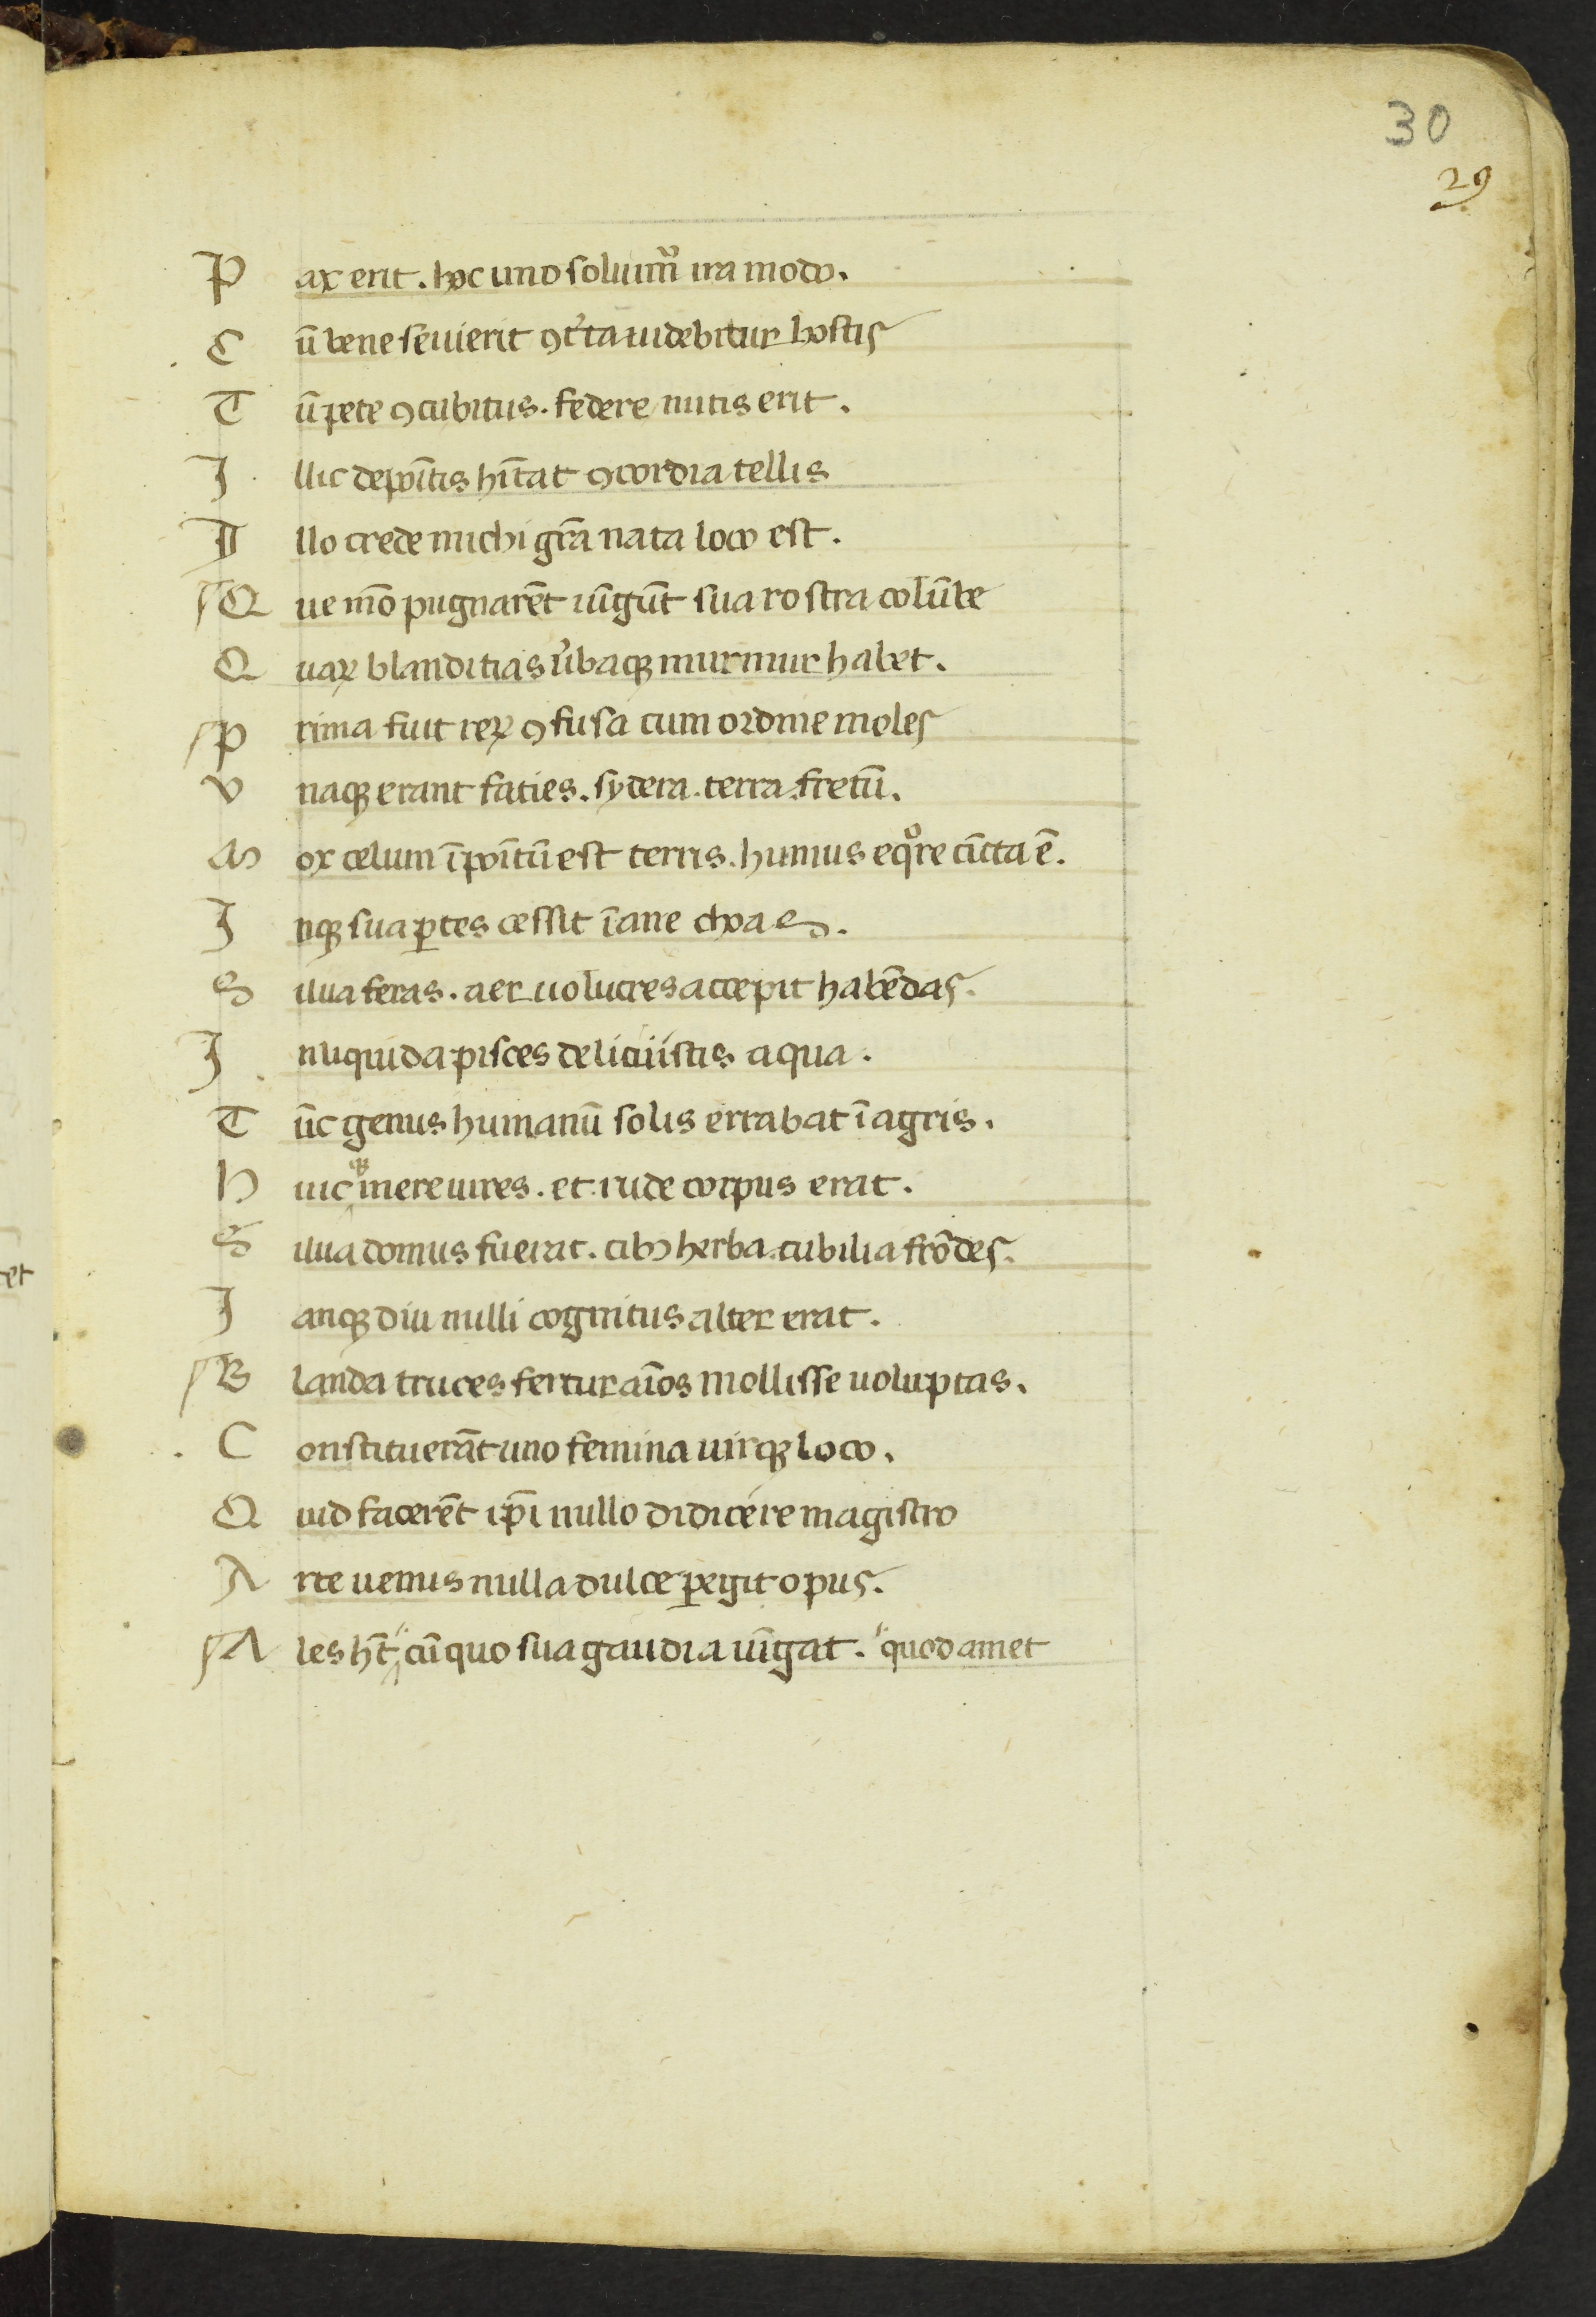 30
29
P ax erit . hoc uno soluim̃ ira modo.
C ũ bene seuierit ꝯc̓ta uidebitur hostis
T ũ pete ꝯcubitus . federe mitis erit .
I llic depoĩtis hĩtat ꝯcordia tellis
I llo crede michi grã nata loco est .
Q ue mõ pugnarẽt iũgũt sua rostra colũbe
Q uaꝝ blanditias u̓baqꝫ murmur habet .
P rima fuit reꝝ ꝯfusa cum ordine moles
V naqꝫ erant faties . sydera . terra . fretũ .
M ox celum ĩpoĩtũ est terris . humus eqͦre cĩcta ẽ .
I nqꝫ sua ꝑtes cessit ĩane chaos .
S ilua feras . aer uolucres accepit habẽdas .
I nliquida pisces delituistis aqua .
T ũc genus humanũ solis errabat ĩ agris .
H uicqꝫ mere uires . et rude corpus erat .
S ilua domus fuerat . cibꝫ herba . cubilia frõdes .
I amqꝫ diu nulli cognitus alter erat .
B landa truces fertur aĩos mollisse uoluptas .
C onstituerãt uno femina uirqꝫ loco .
Q uid facerẽt ip̃i nullo didicere magistro
A rte uenus nulla dulce ꝑegit opus .
A les ht̃ " cũ quo sua gaudia iũgat . " quod amet